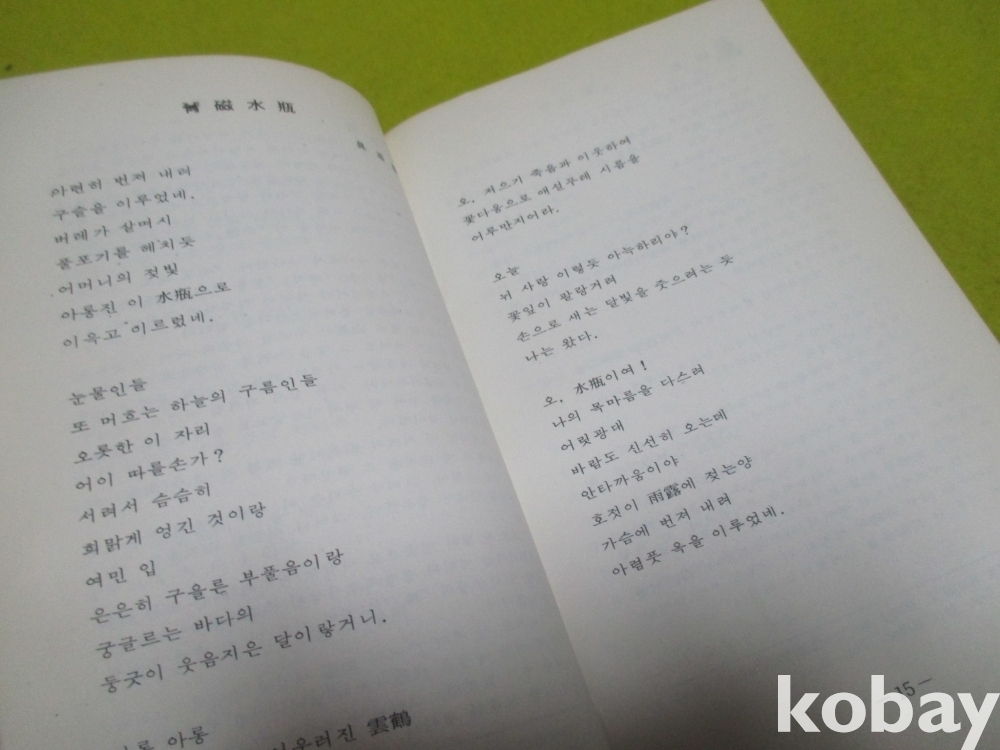 磁水瓶
아련히 번져 내려
구슬을 이루었네.
버레가 살며시
풀포기를 헤치듯
어머니의 젖빛
아롱진 이 水瓶으로
이윽고 이르렀네.
눈물인들
또 머흐는 하늘의 구름인들
오롯한 이 자리
어이 따를손가?
서려서 슴슴히
희맑게 엉긴 것이랑
여민 입
은은히 구을른 부풀음이랑
궁글르는 바다의
둥긋이 웃음지은 달이랗거니.
아롱
雲鶴
오, 저으기 죽음과 이웃하여
꽃다웅으로 애설푸레 시름을
어루만지어라.
오늘
뉘 사랑 이렇듯 아늑하리야?
꽃잎이 팔랑거려
손으로 새는 달빛을 줏으려는 듯
나는 왔다.
오, 水瓶이여!
나의 목마름을 다스려
어릿광대
바람도 신선히 오는데
안타까움이야
호젓이 雨露에 젖는양
가슴에 번져 내려
아렴풋 옥을 이루었네.
15—
kobay